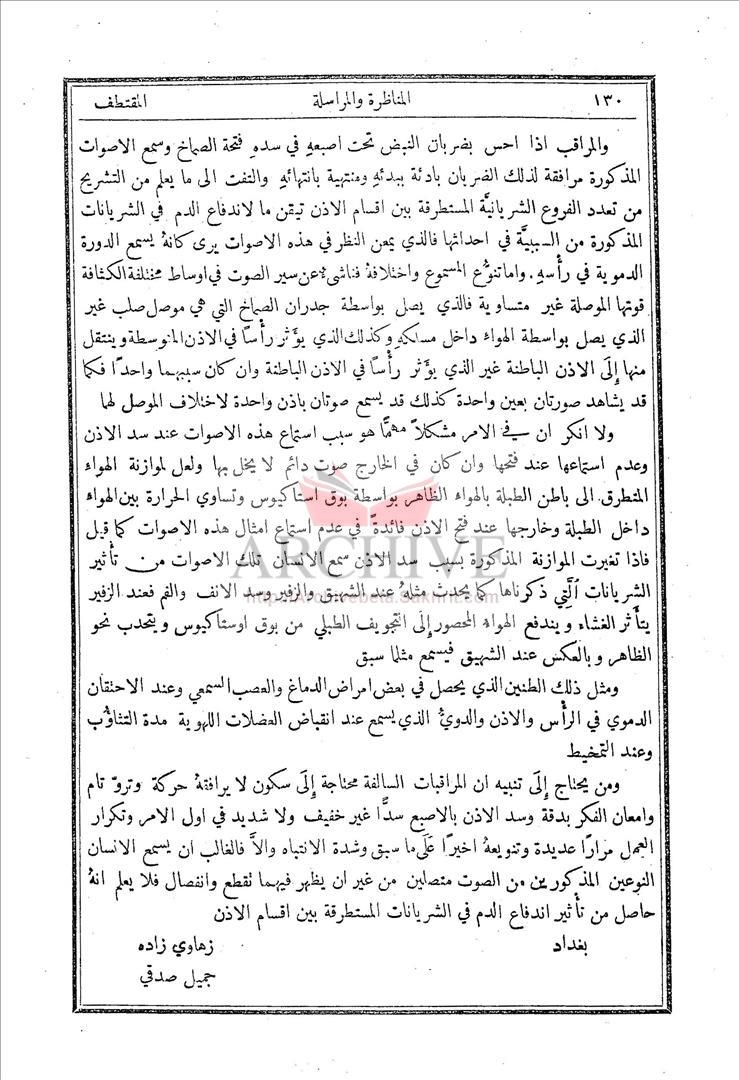 ١٣٠ المناظرة والمراسلة المقتطف
والمراقب اذا احس بضربان النبض تحت اصبعهِ في سده فتحة الصماخ وسمع الاصوات
المذكورة مرافقة لذلك الضربان بادئة ببدئهِ ومنتهية بانتهائهِ والتفت الى ما يعلم من التشريح
من تعدد الفروع الشريانيَّة المستطرقة بين اقسام الاذن تيقن ما لاندفاع الدم في الشريانات
المذكورة من السببيَّة في احداثها فالذي يمعن النظر في هذه الاصوات يرى كانهُ يسمع الدورة
الدموية في رأْسهِ. واما تنوُّع المسموع واختلافهُ فناشئ عن سير الصوت في اوساط مختلفة الكثافة
قوتها الموصلة غير متساوية فالذي يصل بواسطة جدران الصماخ التي هي موصل صلب غير
الذي يصل بواسطة الهواء داخل مسلكهِ وكذلك الذي يؤَثر رأْسًا في الاذن المتوسطة وينتقل
منها إِلَى الاذن الباطنة غير الذي يؤَثر رأْسًا في الاذن الباطنة وان كان سببهما واحدًا فكما
قد يشاهد صورتان بعين واحدة كذلك قد يسمع صوتان باذن واحدة لاختلاف الموصل لها
ولا انكر ان في الامر مشكلاً مهمًّا هو سبب استماع هذه الاصوات عند سد الاذن
وعدم استماعها عند فتحها وان كان في الخارج صوت دائم لا يخل بها ولعل لموازنة الهواء
المتطرق الى باطن الطبلة بالهواء الظاهر بواسطة بوق استاكيوس وتساوي الحرارة بين الهواء
داخل الطبلة وخارجها عند فتح الاذن فائدةً في عدم استماع امثال هذه الاصوات كما قبل
فاذا تغيرت الموازنة المذكورة بسبب سد الاذن سمع الانسان تلك الاصوات من تأْثير
الشريانات اَلَّتِي ذكرناها كما يحدث مثلهُ عند الشهيق والزفير وسد الانف والفم فعند الزفير
يتأَثر الغشاء ويندفع الهواء المحصور إِلَى التجويف الطبلي من بوق اوستاكيوس ويتحدب نحو
الظاهر وبالعكس عند الشهيق فيسمع مثلما سبق
ومثل ذلك الطنين الذي يحصل في بعض امراض الدماغ والعصب السمعي وعند الاحتقان
الدموي في الرأْس والاذن والدويُّ الذي يسمع عند انقباض العضلات اللهوية مدة التثاؤُب
وعند التمخيط
ومن يحتاج إِلَى تنبيه ان المراقبات السالفة محتاجة إِلَى سكون لا يرافقهُ حركة وتروّ تام
وامعان الفكر بدقة وسد الاذن بالاصبع سدًّا غير خفيف ولا شديد في اول الامر وتكرار
العمل مرارًا عديدة وتنويعهُ اخيرًا عَلَى ما سبق وشدة الانتباه والاَّ فالغالب ان يسمع الانسان
النوعين المذكورين من الصوت متصلين من غير ان يظهر فيهما تقطع وانفصال فلا يعلم انهُ
حاصل من تأْثير اندفاع الدم في الشريانات المستطرقة بين اقسام الاذن
بغداد زهاوي زاده
جميل صدقي
ARCHIVE